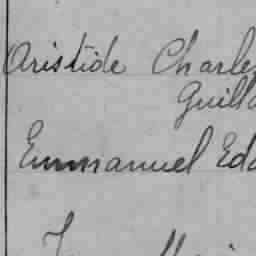 Aristide Charle
Guill
Emmanuel Ed